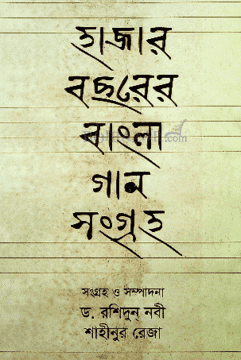 হাজার
বছরের
বাংলা
গান
সংগ্রহ
সংগ্রহ ও সম্পাদনা
ড. রশিদুন্ নবী
শাহীনুর রেজা